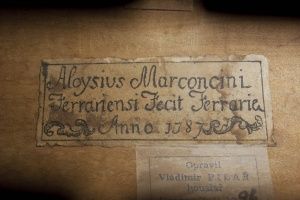 Aloysius Marconcini
Ferrariensi Fecit Ferrarie
Anno 1787
Opravil
Vladimír PILAŘ
houslař